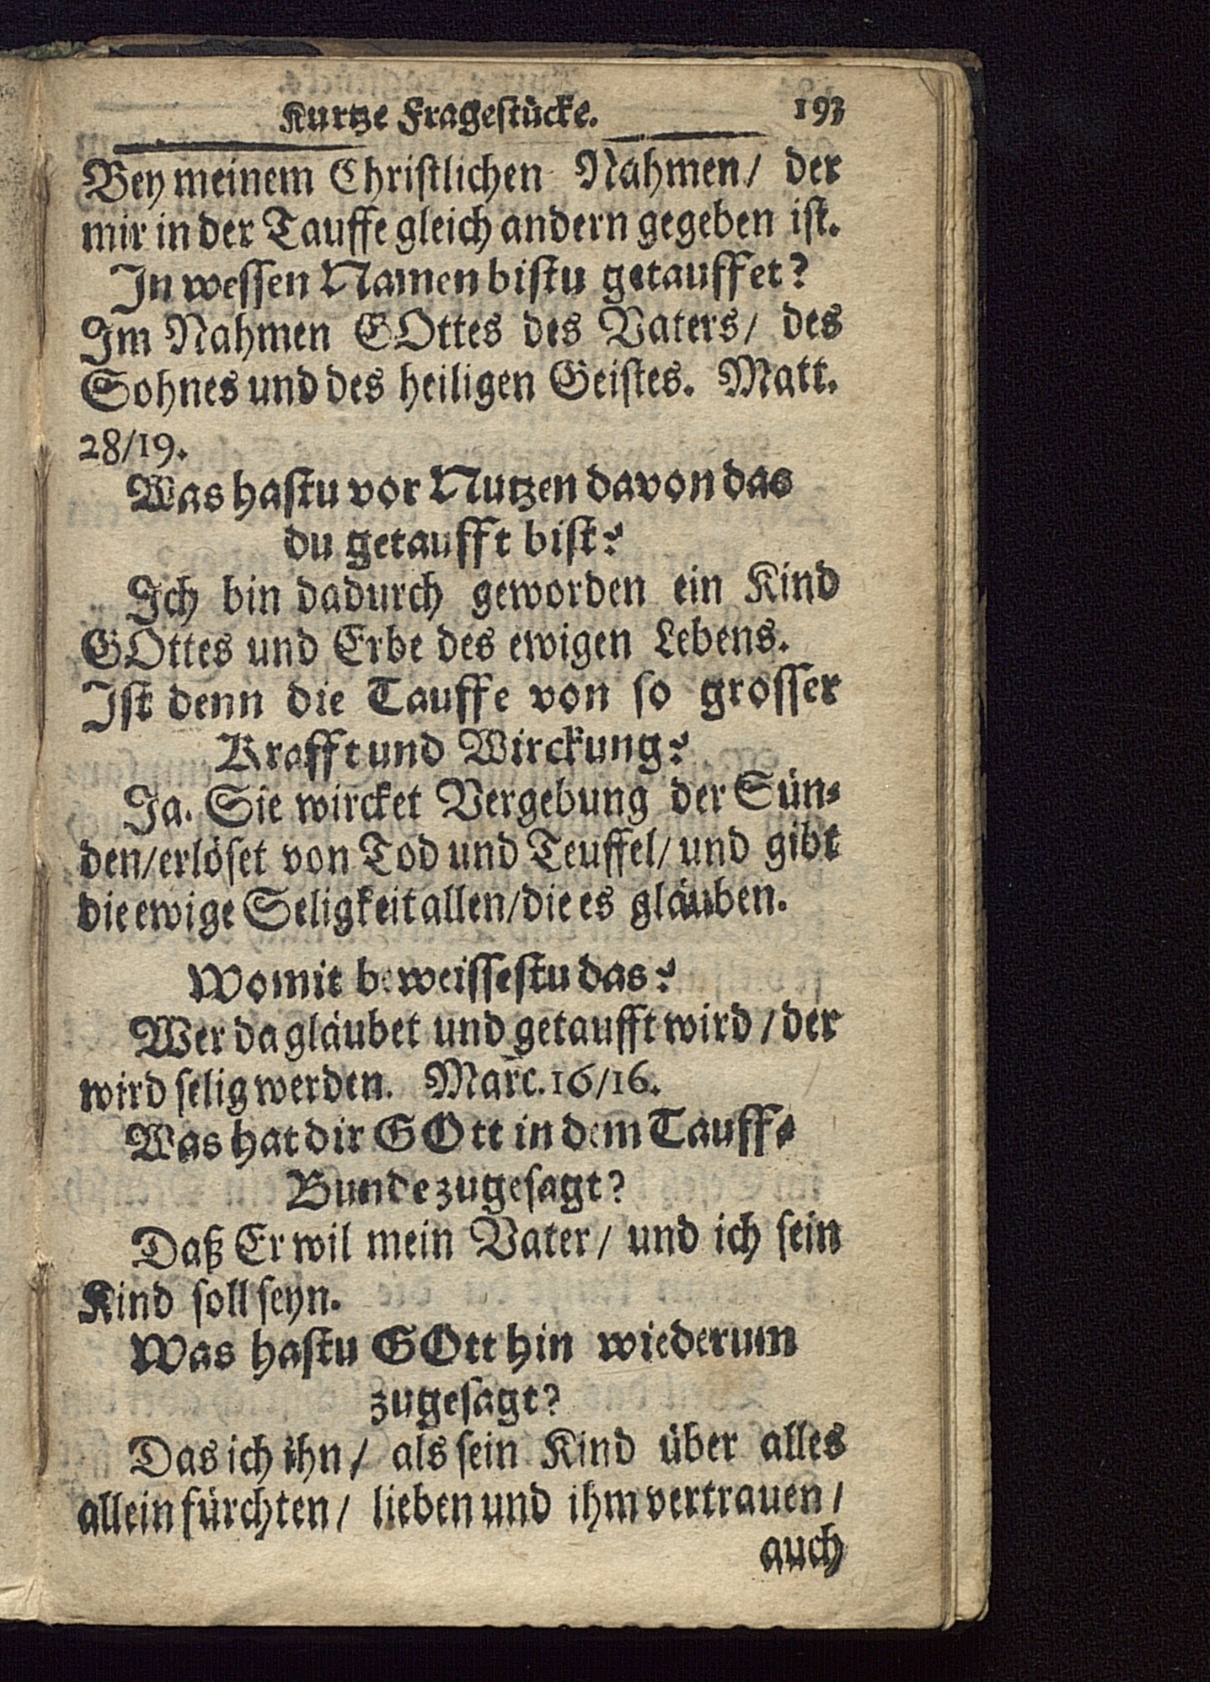 Kurtze Frageſtücke. 193
Bey meinem Chriſtlichen Nahmen/ der
mir in der Tauffe gleich andern gegeben iſt.
In weſſen Namen biſtu getauffet?
Im Nahmen GOttes des Vaters/ des
Sohnes und des heiligen Geiſtes. Matt.
28/19.
Was haſtu vor Nutzen davon das
du getaufft biſt?
Ich bin dadurch geworden ein Kind
GOttes und Erbe des ewigen Lebens.
Iſt denn die Tauffe von ſo groſſer
Krafft und Wirckung?
Ja. Sie wircket Vergebung der Sün⸗
den/erlöſet von Tod und Teuffel/ und gibt
die ewige Seligkeit allen/die es gläuben.
Womit beweiſſeſtu das?
Wer da gläubet und getaufft wird/der
wird ſelig werden. Marc. 16/16.
Was hat dir GOtt in dem Tauff⸗
Bunde zugeſagt?
Daß Er wil mein Vater/ und ich ſein
Kind ſoll ſeyn.
Was haſtu GOtt hin wiederum
zugeſagt?
Das ich ihn/ als ſein Kind über alles
allein fürchten/ lieben und ihm vertrauen/
auch